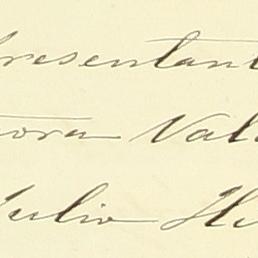 resentant
tora Val
Julio Hu